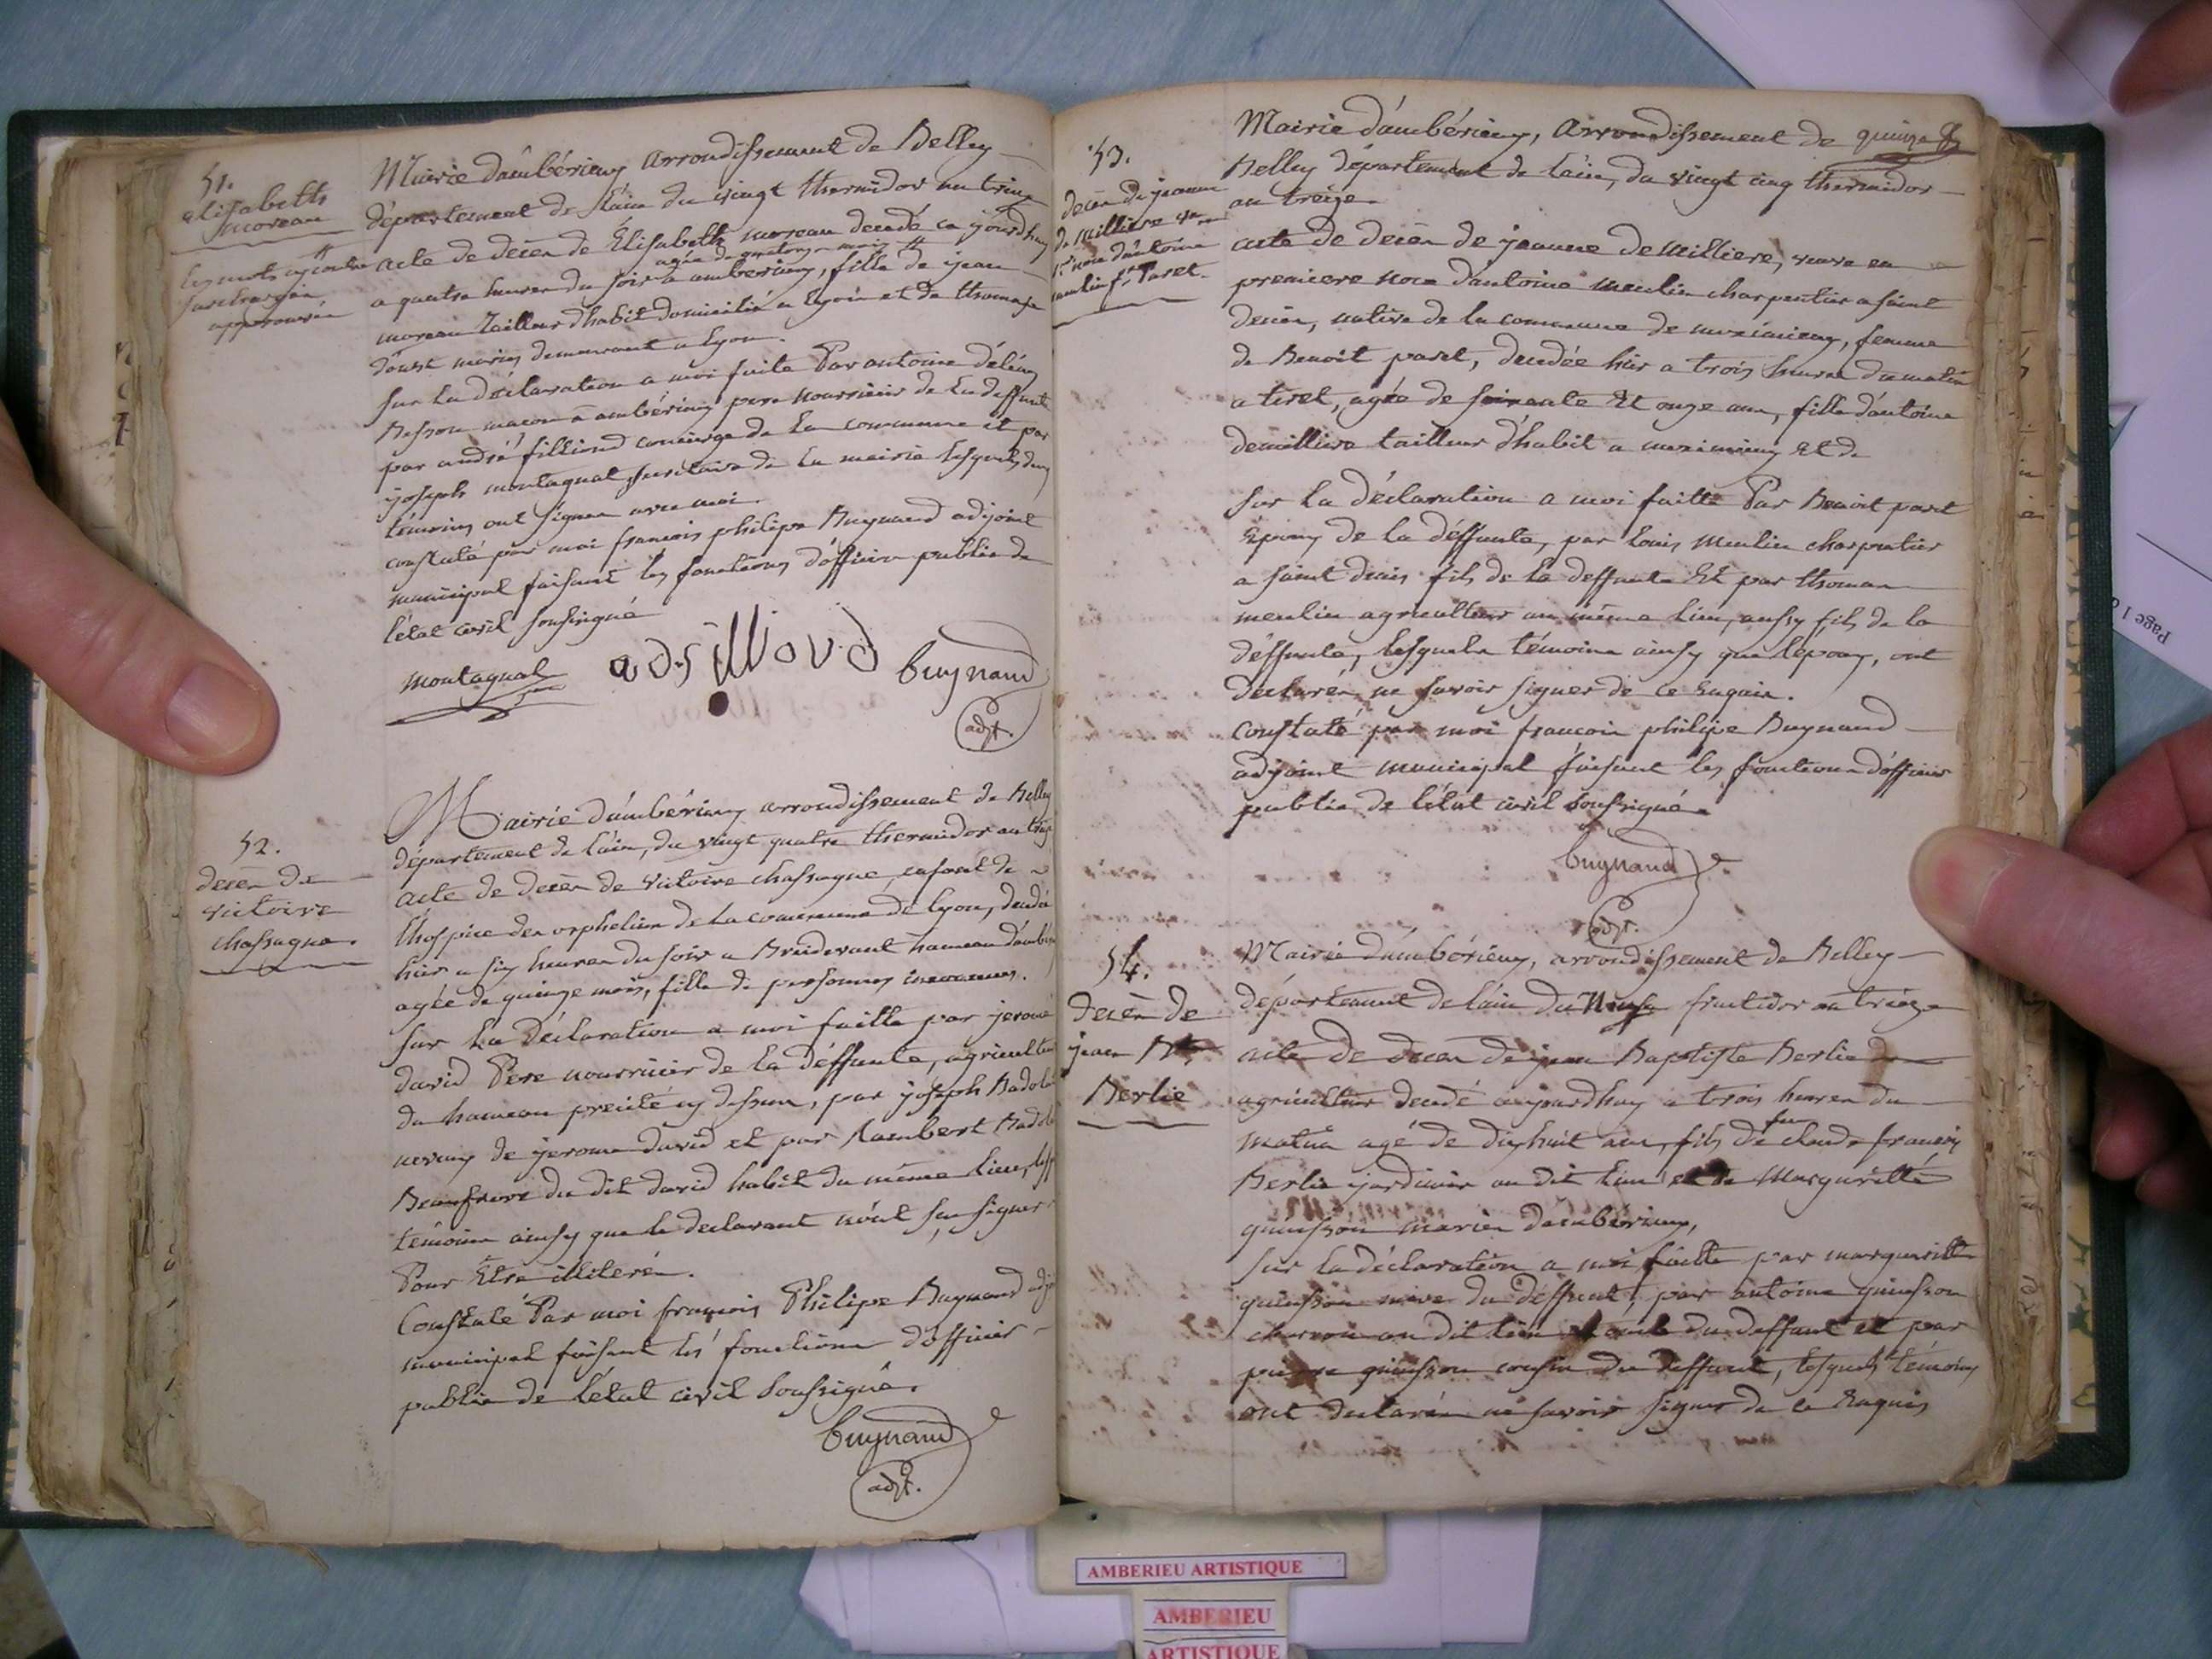 51.
Elisabeth
moreau
les mots ajoutés
surchargés
approuvés
Mairie d'ambérieux arrondissement de Belley
département de l'ain du vingt thermidor an treize
acte de décès de Élisabeth moreau décédé ce jourd'huy
agée de quatorze mois
a quatre heures du soir a amberieux, fille de jean
moreau tailleur d'habit domicilié a lyon et de thomase
mariés demeurant a lyon.
sur la déclaration a moi faite Par antoine
Besson macon a ambérieux pere nourricier de la deffunte
par andré filliord concierge de la commune et par
joseph montagnat secrétaire de la mairie lesquels deux
témoins ont signés avec moi.
constaté par moi francois philipe Buynand adjoint
municipal faisant les fonctions d'officier public de
l'état civil soussigné
montagnat adfilliord buynand
adjt.
52.
décès de
victoire
chassagne.
Mairie d'ambérieux arrondissement de Belley
département de l'ain, du vingt quatre thermidor an treize
acte de décès de victoire chassagne, enfant de
l'hospice des orphelins de la commune de lyon, décédé
hier a six heures du soir a Breidevant hameau d'ambérieux
agée de quinze mois, fille de personnes inconnues.
sur la déclaration a moi faitte par jerome
david Pere nourricier de la déffunte, agriculteur
du hameau precité cy dessus, par joseph Badolat
neveux de jerome david et par Lambert Badolat
Beaufrere du dit david habit du même lieu, lesq
témoins ainsy que le declarant n'ont su signer
Pour Etre illiterés.
Constaté Par moi francois Philipe Buynand adjt
municipal faisant les fonctions d'officier
public de l'état civil soussigné.
buynand
adjt.
53.
décès de jeanne
de milliere vve
1re noce d'antoine
meulin fe Paret.
quinze
Mairie d'ambérieux, arrondissement de
Belley département de l'ain, du vingt cinq thermidor
an treize.
acte de décès de jeanne demilliere, veuve en
premiere noce d'antoine meulin charpentier a saint
denis, native de la commune de meximieux, femme
de Benoit paret, décédée hier a trois heures du matin
a tiret, agée de soixante Et onze ans, fille d'antoine
demilliere tailleur d'habit a meximieux Et de
sur la déclaration a moi faitte Par Benoit paret
Epoux de la déffunte, par louis meulin charpentier
a saint denis fils de la deffunte Et par thomas
meulin agriculteur au même lieu, aussy fils de la
déffunte, lesquels témoins ainsy que l'epoux, ont
declarés ne savoir signer de ce Enquis.
constaté par moi francois philipe Buynand
adjoint municipal faisant les fonctions d'officier
public de l'état civil soussigné.
buynand
adjt.
54.
décès de
jean Bte
Berlie
Mairie d'ambérieux, arrondissement de Belley
département de l'ain du Neuf fructidor an treize
acte de décès de jean Baptiste Berlie
agriculteur décédé aujourdhuy a trois heures du
matin agé de dixhuit ans, fils de feu claude francois
Berlie jardinier au dit lieu et de Margueritte
quinson mariés d'ambérieux,
sur la déclaration a moi faitte par margueritte
quinson mere du déffunt, par antoine quinson
charron au dit lieu oncle du deffunt et par
pierre quinson cousin du deffunt, lesquels témoins
ont declarés ne savoir signer de ce Enquis
Page 1
AMBERIEU ARTISTIQUE
AMBERIEU
ARTISTIQUE